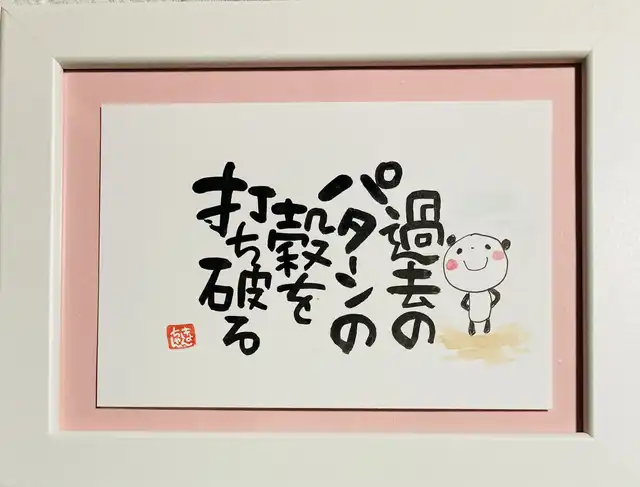 過去の
パターンの
殻を
打ち破る